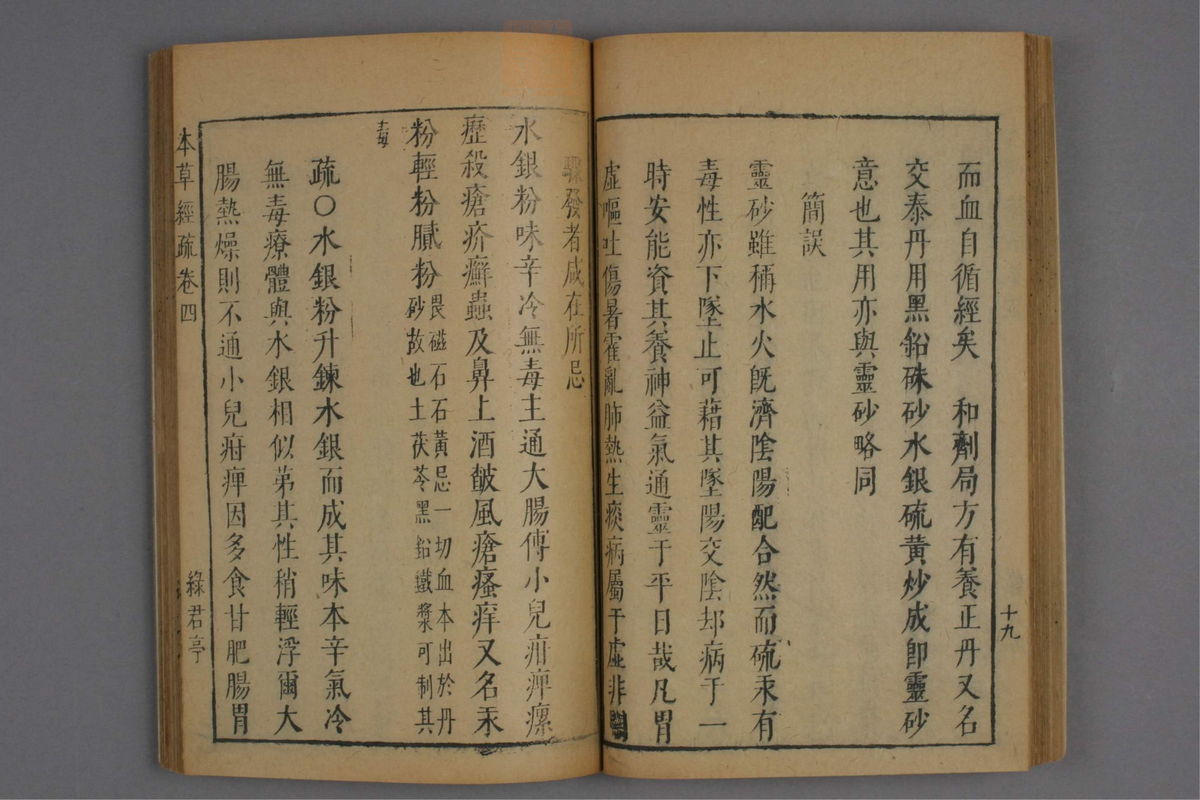 而血自循經矣 和劑局方有養正丹又名
交泰丹用黑鉛硃砂水銀硫黃炒成卽靈砂
意也其用亦與靈砂略同
簡誤
靈砂雖稱水火旣濟陰陽配合然而硫汞有
毒性亦下墜止可藉其墜陽交陰却病于一
時安能資其養神益氣通靈于平日哉凡胃
虛嘔吐傷暑霍亂肺熱生痰病屬于虛非
十九
驟發者咸在所忌
水銀粉味辛冷無毒主通大腸傅小兒疳痺瘰
癧殺瘡疥癬蟲及鼻上酒皶風瘡瘙痒又名汞
粉輕粉膩粉畏磁石石黃忌一切血本出於丹
砂故也土茯苓黑鉛鐵漿可制其
毒
疏〇水銀粉升鍊水銀而成其味本辛氣冷
無毒療體與水銀相似苐其性稍輕浮爾大
腸熱燥則不通小兒疳痺因多食甘肥腸胃
本草經疏卷四
綠君亭